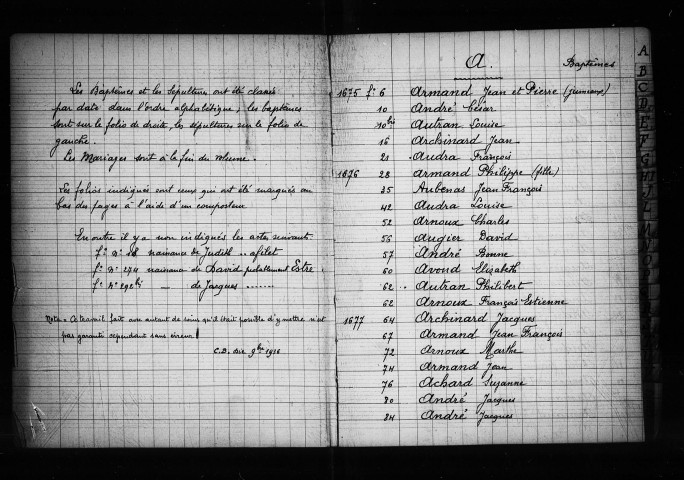 Les Baptêmes et les Sépultures ont été classés
par date dans l'ordre alphabétique ; les baptêmes
sont sur le folio de droite, les sépultures sur le folio de
gauche.
Les Mariages sont à la fin du volume.
Les folios indiqués sont ceux qui ont été marqués au
bas des pages à l'aide d'un composteur
En outre il y a non indiqués les actes suivants
f° n° 18 naissance de Judith .. afilet
f° n° 274 naissance de David probablement Estre
f° n° 292bis — de Jacques .......
Nota = Ce travail fait avec autant de soins qu'il était possible d'y mettre n'est
pas garanti cependant sans erreur !
C.D. dix 9bre 1916
A. Baptêmes
1675 f° 6 Armand Jean et Pierre (jumeaux)
10 André César
10bis Autran Louise
16 Archinard Jean
21 Audra François
1676 28 Armand Philippe (fille)
35 Aubenas Jean François
42 Audra Louise
52 Arnoux Charles
56 Augier David
57 André Bonne
60 Avond Elizabeth
62 Autran Philibert
62 Arnoux François-Estienne
1677 64 Archinard Jacques
67 Armand Jean François
72 Arnoux Marthe
74 Armand Jean
76 Achard Suzanne
80 André Jacques
84 André Jacques
A
B
C
D
E
F
G
H
I
J
L
M
N
O